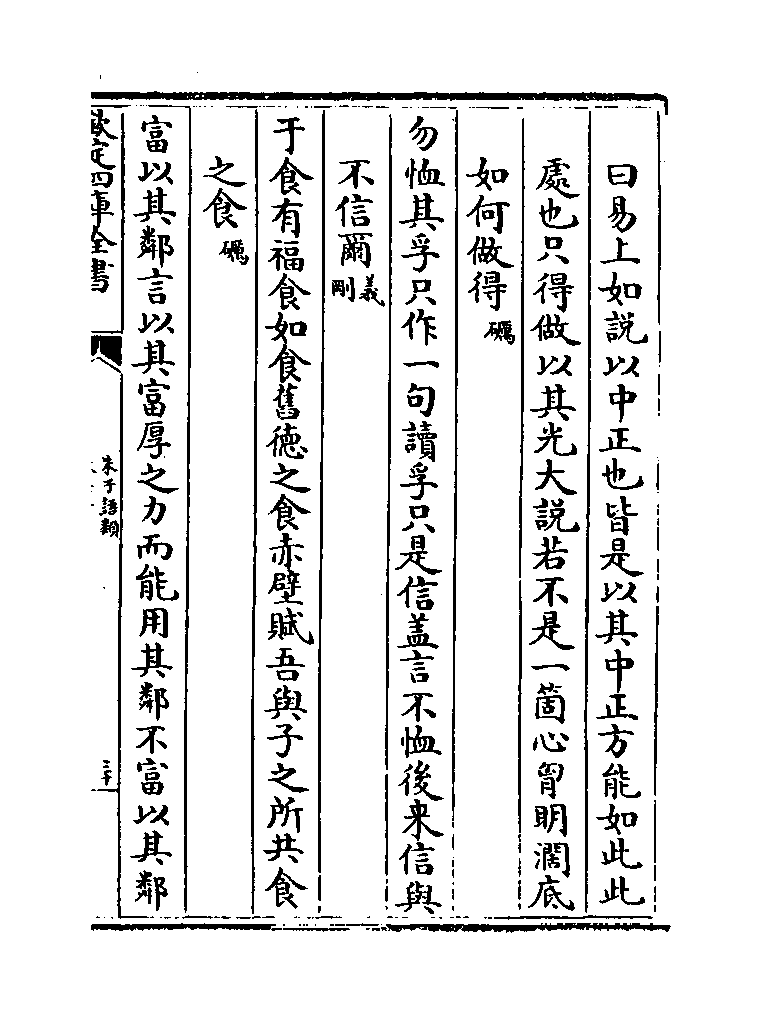 曰易上如説以中正也皆是以其中正方能如此此
處也只得做以其光大説若不是一箇心胷明濶底
如何做得礪
勿恤其孚只作一句讀孚只是信盖言不恤後来信與
不信爾義剛
于食有福食如食舊徳之食赤壁賦吾與子之所共食
之食礪
富以其鄰言以其富厚之力而能用其鄰不富以其鄰
欽定四庫全書
朱子語類
三十